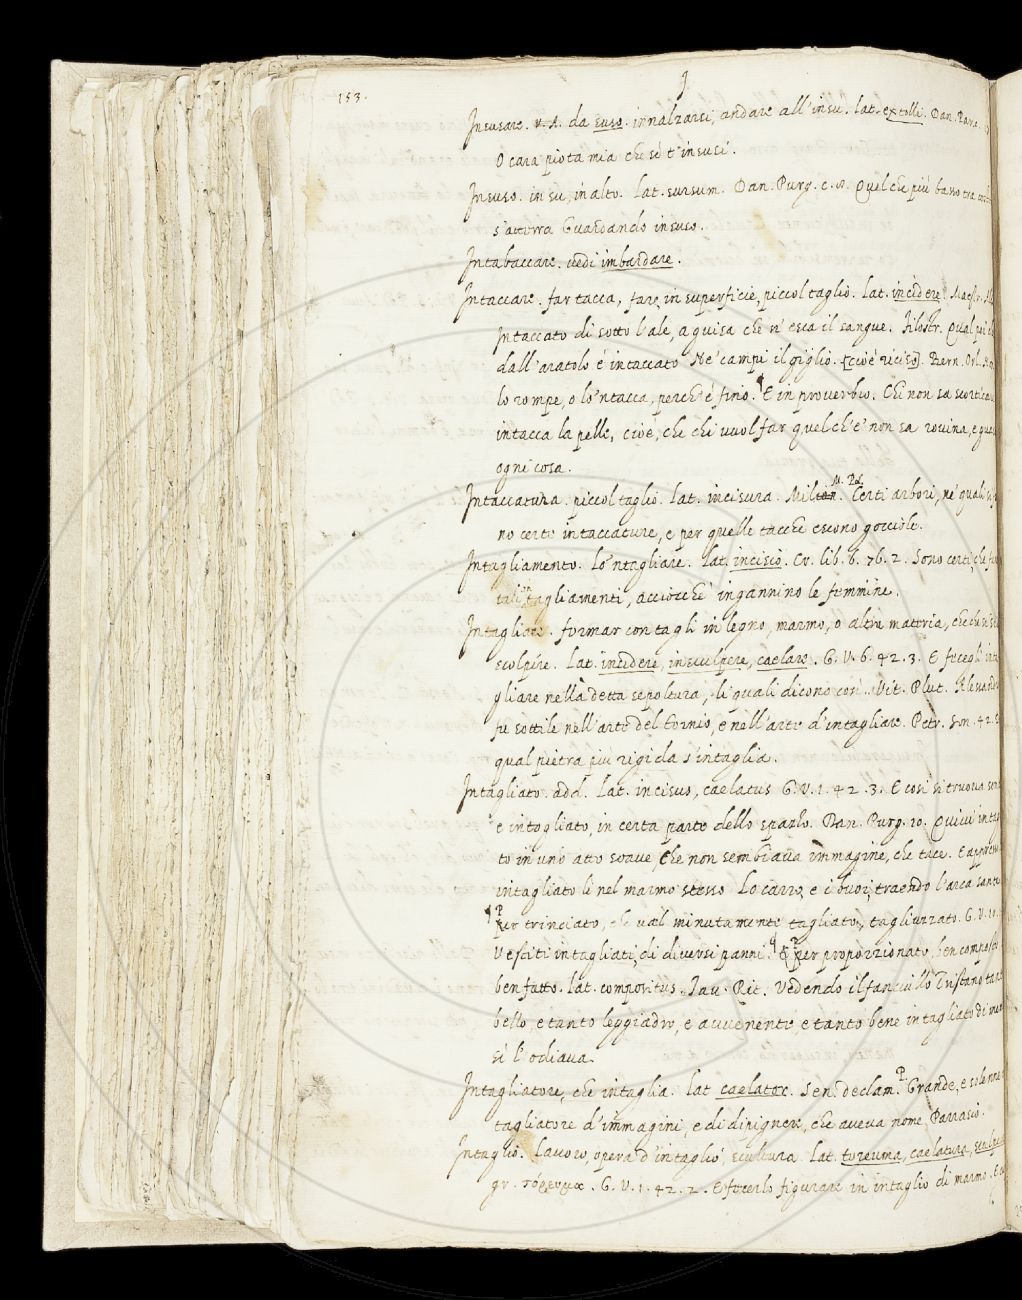 153.
J
Insusare. v. A. da suso. innalzarsi, andare all'insu. lat. extolli. Dan. Para.
O cara piota mia che sè t'insusi.
Insuso. in su, in alto. lat. sursum. Dan. Purg. c. Quel che più basso tra
s'atterra Guardando in suso.
Intabaccare. vedi imbardare.
Intaccare. far tacca, fare, in superficie, piccol taglio. lat. incidere. Maestr.
Intaccato di sotto l'ale, a guisa che n'esca il sangue. Filostr. Qual poi
dall'aratolo è intaccato Ne' campi il giglio. [cioè riciso]. Bern. Orl.
lo rompe, o lo'ntacca, perch'è fino. E in proverbio. Chi non sa scorticar
intacca la pelle, cioè, che chi vuol far quel ch'e' non sa rovina, e
ogni cosa.
M. Pol.
Intaccatura. piccol taglio. lat. incisura. Milion. Certi arbori, ne' quali
no certe intaccature, e per quelle tacche escono gocciole.
Intagliamento. Lo'ntagliare. lat. incisio. Cr. lib. 6. 76. 2. Sono certi, che
tali, tagliamenti, acciocchè ingannino le femmine.
Intagliare. formar con tagli in legno, marmo, o altra materia, che
scolpire. Lat. incidere, insculpere, caelare. G. V. 6. 42. 3. E fecegli inta
gliare nella detta sepoltura, li quali dicono così. Vit. Plut. Alessandro
fu sottile nell'arte del tornio, e nell'arte d'intagliare. Petr. Son. 42.
qual pietra più rigida s'intaglia.
Intagliato. add. Lat. incisus, caelatus G. V. 1. 42. 3. E così si truova
e intagliato, in certa parte dello spazzo. Dan. Purg. 10. Quivi intag
to in uno atto soave, Che non sembiava immagine, che tace. E appresso
intagliato li nel marmo stesso Lo carro, e i buoi, traendo l'arca santa
per trinciato, che val minutamente tagliato, tagliuzzato. G. V. 10.
Vestiti intagliati, di diversi panni. E per proporzionato, ben composto
ben fatto. lat. compositus. Tav. Rit. Vedendo il fanciullo Tristano tanto
bello, e tanto leggiadro, e avvenente e tanto bene intagliato di
sì l'odiava.
Intagliatore, che intaglia. lat caelator. Sen. declam. P. Grande, e solenne
tagliatore d'immagini, e di dipignere, che aveva nome, Parrasio.
Intaglio. Lavoro, opera d'intaglio, scultura. Lat. toreuma, caelatura,
gr. τόρευμα. G. V. 1. 42. 2. E fecerlo figurare in intaglio di marmo.